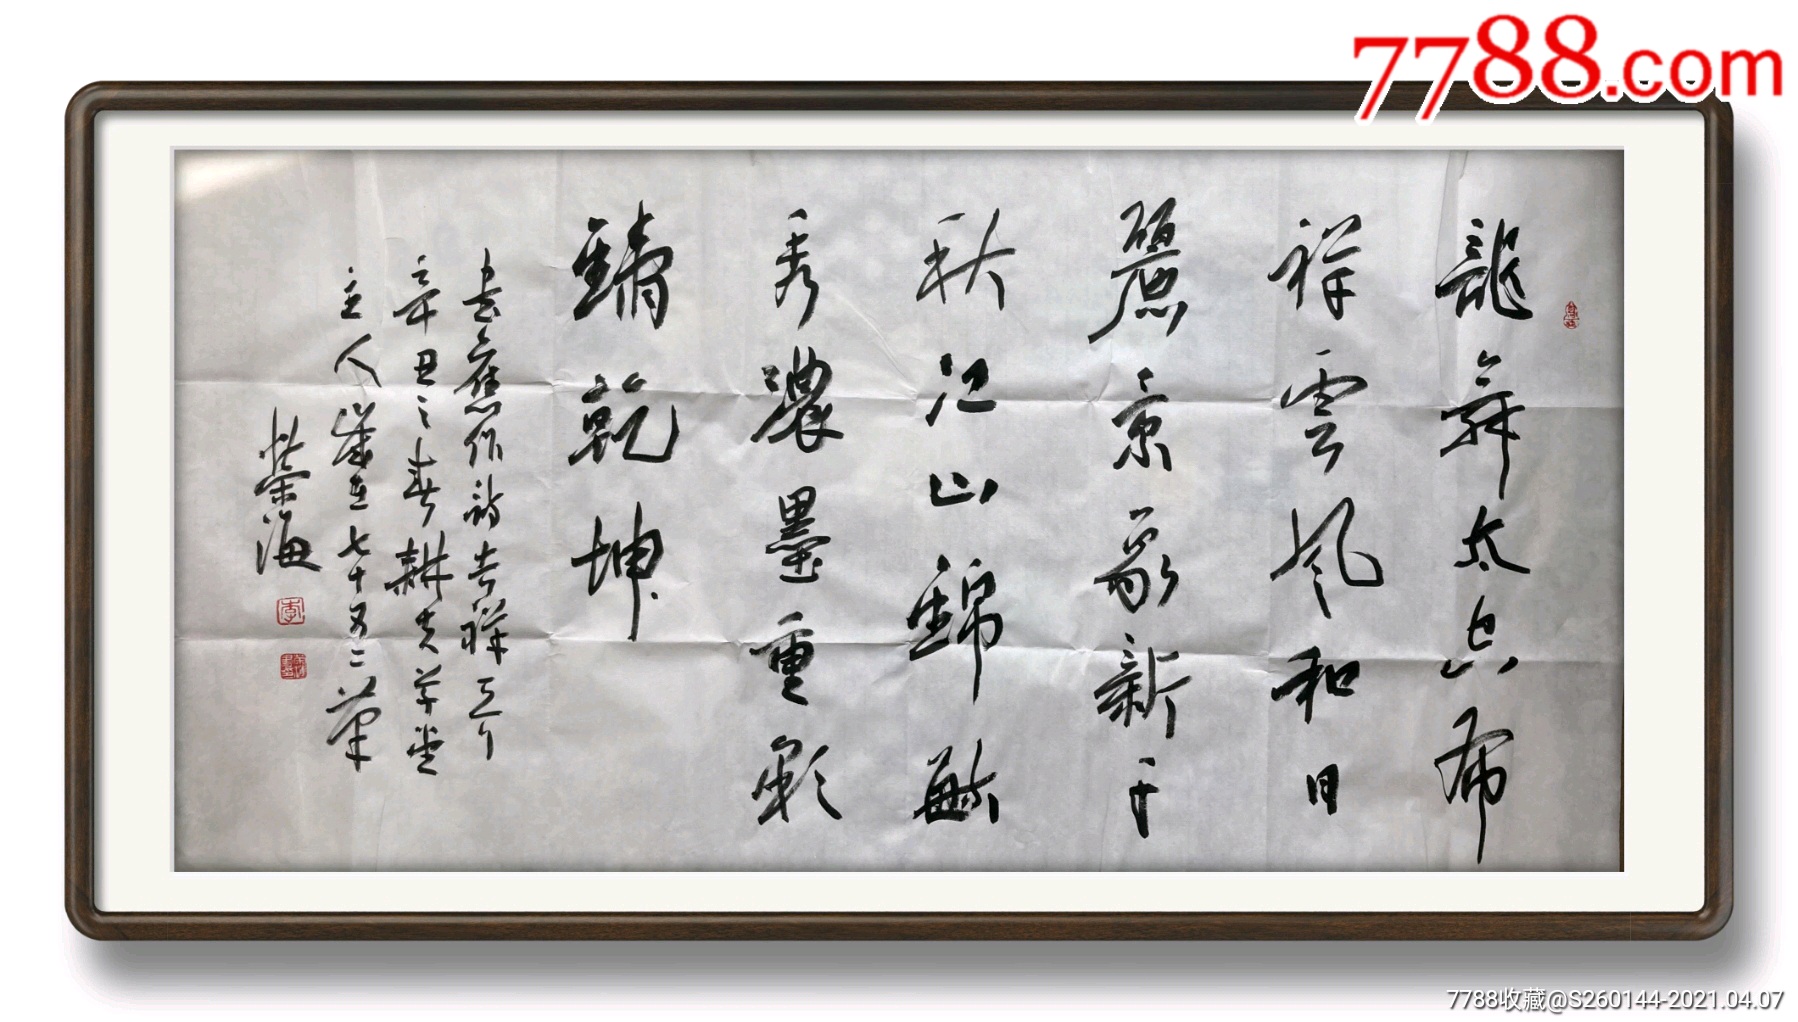 7788.com
龍舞太空布
祥雲風和日
麗景象新千
秋江山錦毓
秀濃墨重彩
鑄乾坤
書舊作詩
辛丑之春耕夫草堂
主人歲在七十又二筆
榮海
李
7788收藏@S260144-2021.04.07